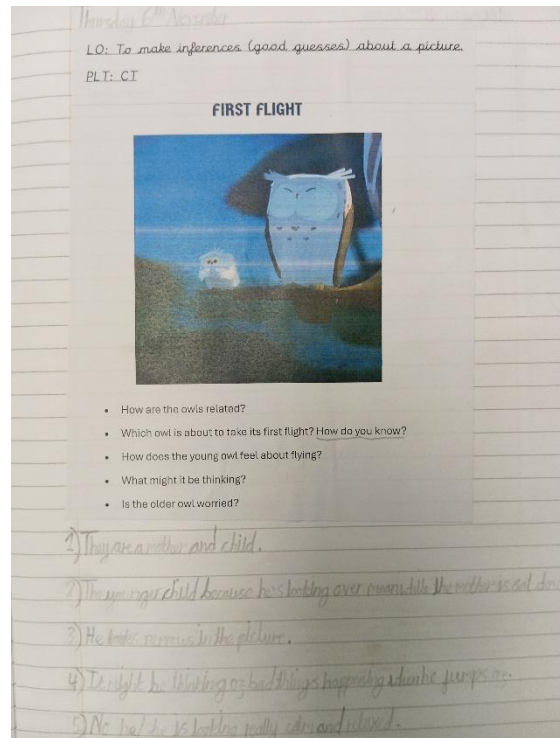 Thursday 6th November
LO: To make inferences (good guesses) about a picture.
PLT: CT
FIRST FLIGHT
• How are the owls related?
• Which owl is about to take its first flight? How do you know?
• How does the young owl feel about flying?
• What might it be thinking?
• Is the older owl worried?
1) They are a mother and child.
2) The younger child because he's looking over meanwhile the mother is sat
3) He looks nervous in the picture.
4) It might be thinking of bad things happening when he jumps
5) No he/she is looking really calm and relaxed.